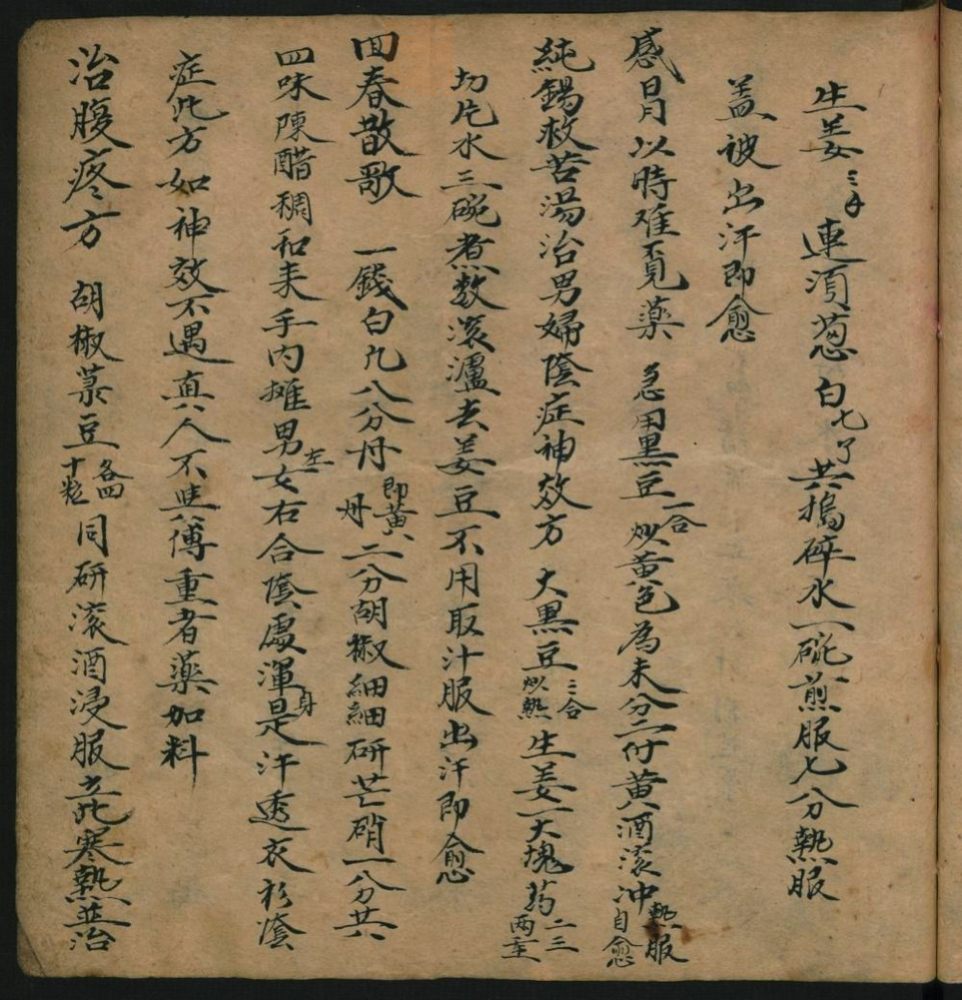 生姜三钱連湏葱白七个共搗碎水一碗煎服七分熱服
盖被出汗即愈
感冒以時难覓藥 急用黑豆一合炒黄色為末分二付黄酒滚冲熱服自愈
純錫救苦湯治男婦陰症神效方 大黑豆三合炒熱生姜一大塊約二三两重
切片水三碗煮数滚濾去姜豆不用取汁服出汗即愈
回春散歌 一錢白凡八分丹即黄丹二分胡椒細細研芒硝一分共
四味陳醋稠和来手内摊男左女右合陰處渾身是汗透衣衫陰
症此方如神效不遇真人不與傳重者藥加料
治腹疼方 胡椒菉豆各四十粒同研滚酒浸服立此寒熱並治